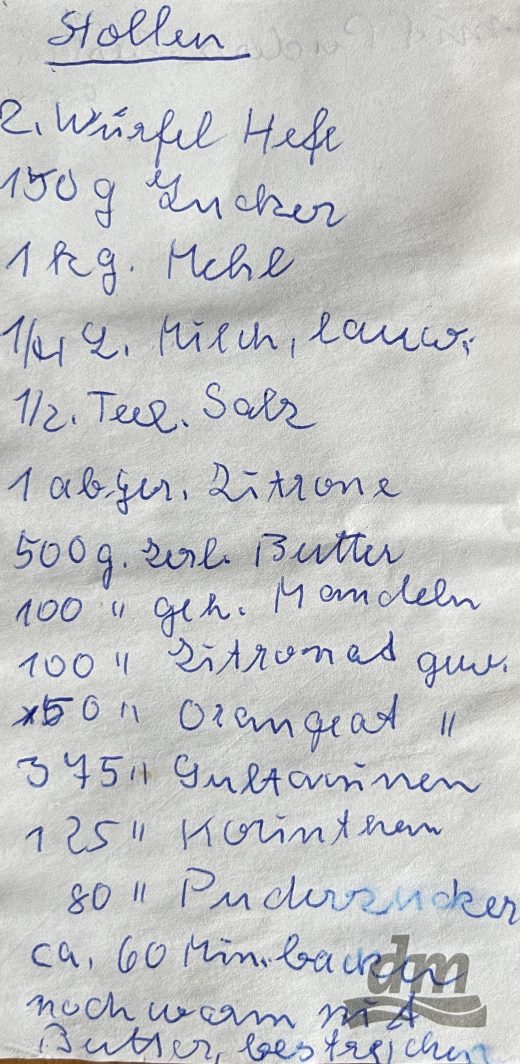 Stollen
2. Würfel Hefe
150 g Zucker
1 kg. Mehl
1/4 L. Milch, lauw.
1/2. Teel. Salz
1 abger. Zitrone
500 g. zerl. Butter
100 " geh. Mandeln
100 " Zitronat gew.
50 " Orangeat "
375 " Sultaninen
125 " Korinthen
80 " Puderzucker
ca. 60 Min. backen
dm
noch warm mit
Butter, bestreichen